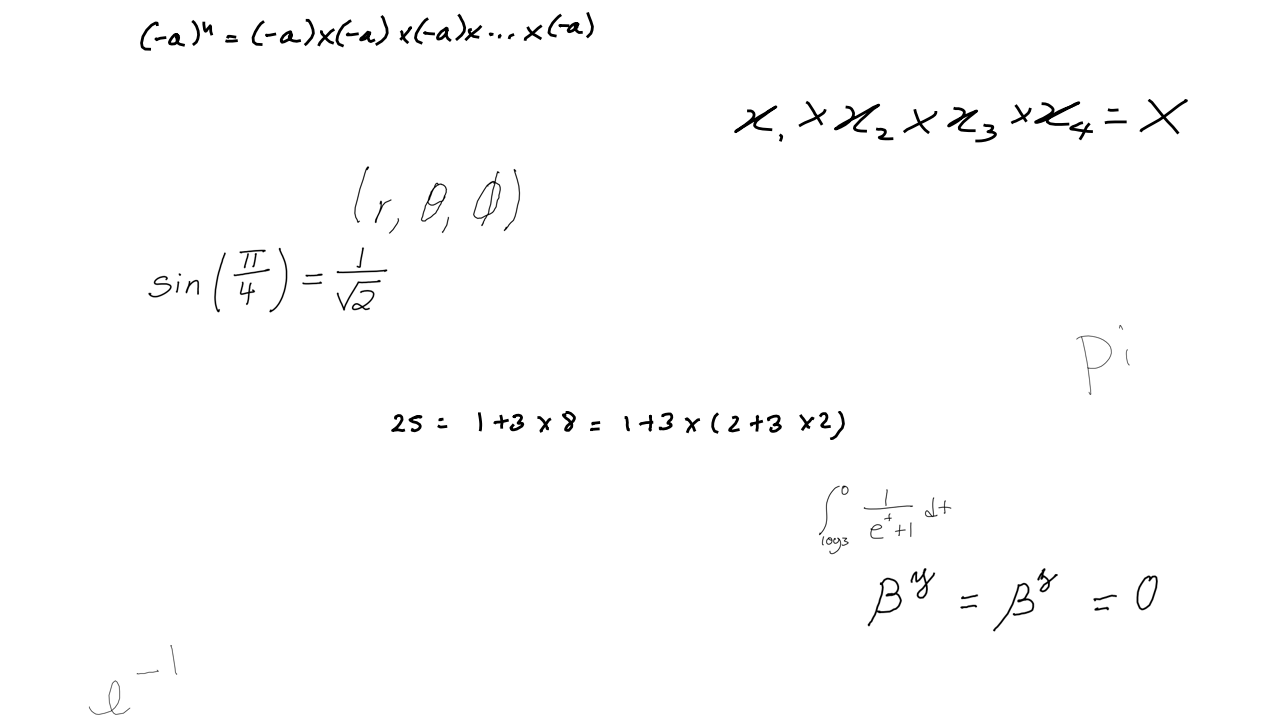 (-a)ⁿ = (-a)×(-a)×(-a)×...×(-a)
x₁ × x₂ × x₃ × x₄ = X
(r, θ, ϕ)
sin(π/4) = 1/√2
pi
25 = 1+3×8 = 1+3×(2+3×2)
∫_{log3}^{0} 1/(e^t+1) dt
β^y = β^z = 0
e⁻¹